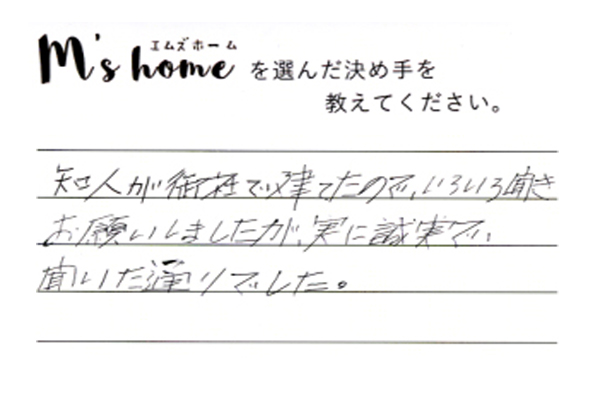 エムズホーム
M's home を選んだ決め手を
教えてください。
知人が御社で建てたので、いろいろ聞き
お願いしましたが、実に誠実で、
聞いた通りでした。